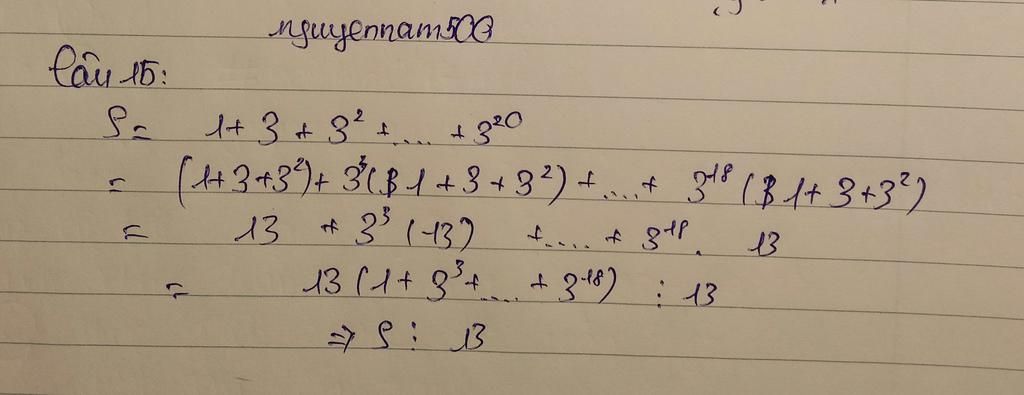 nguyennam500
Câu 15:
S = 1 + 3 + 3² + .... + 3²⁰
= (1+3+3²) + 3³(1+3+3²) + ... + 3¹⁸(1+3+3²)
= 13 + 3³(13) + .... + 3¹⁸. 13
= 13(1+3³+ .... + 3¹⁸) ⋮ 13
⇒ S ⋮ 13